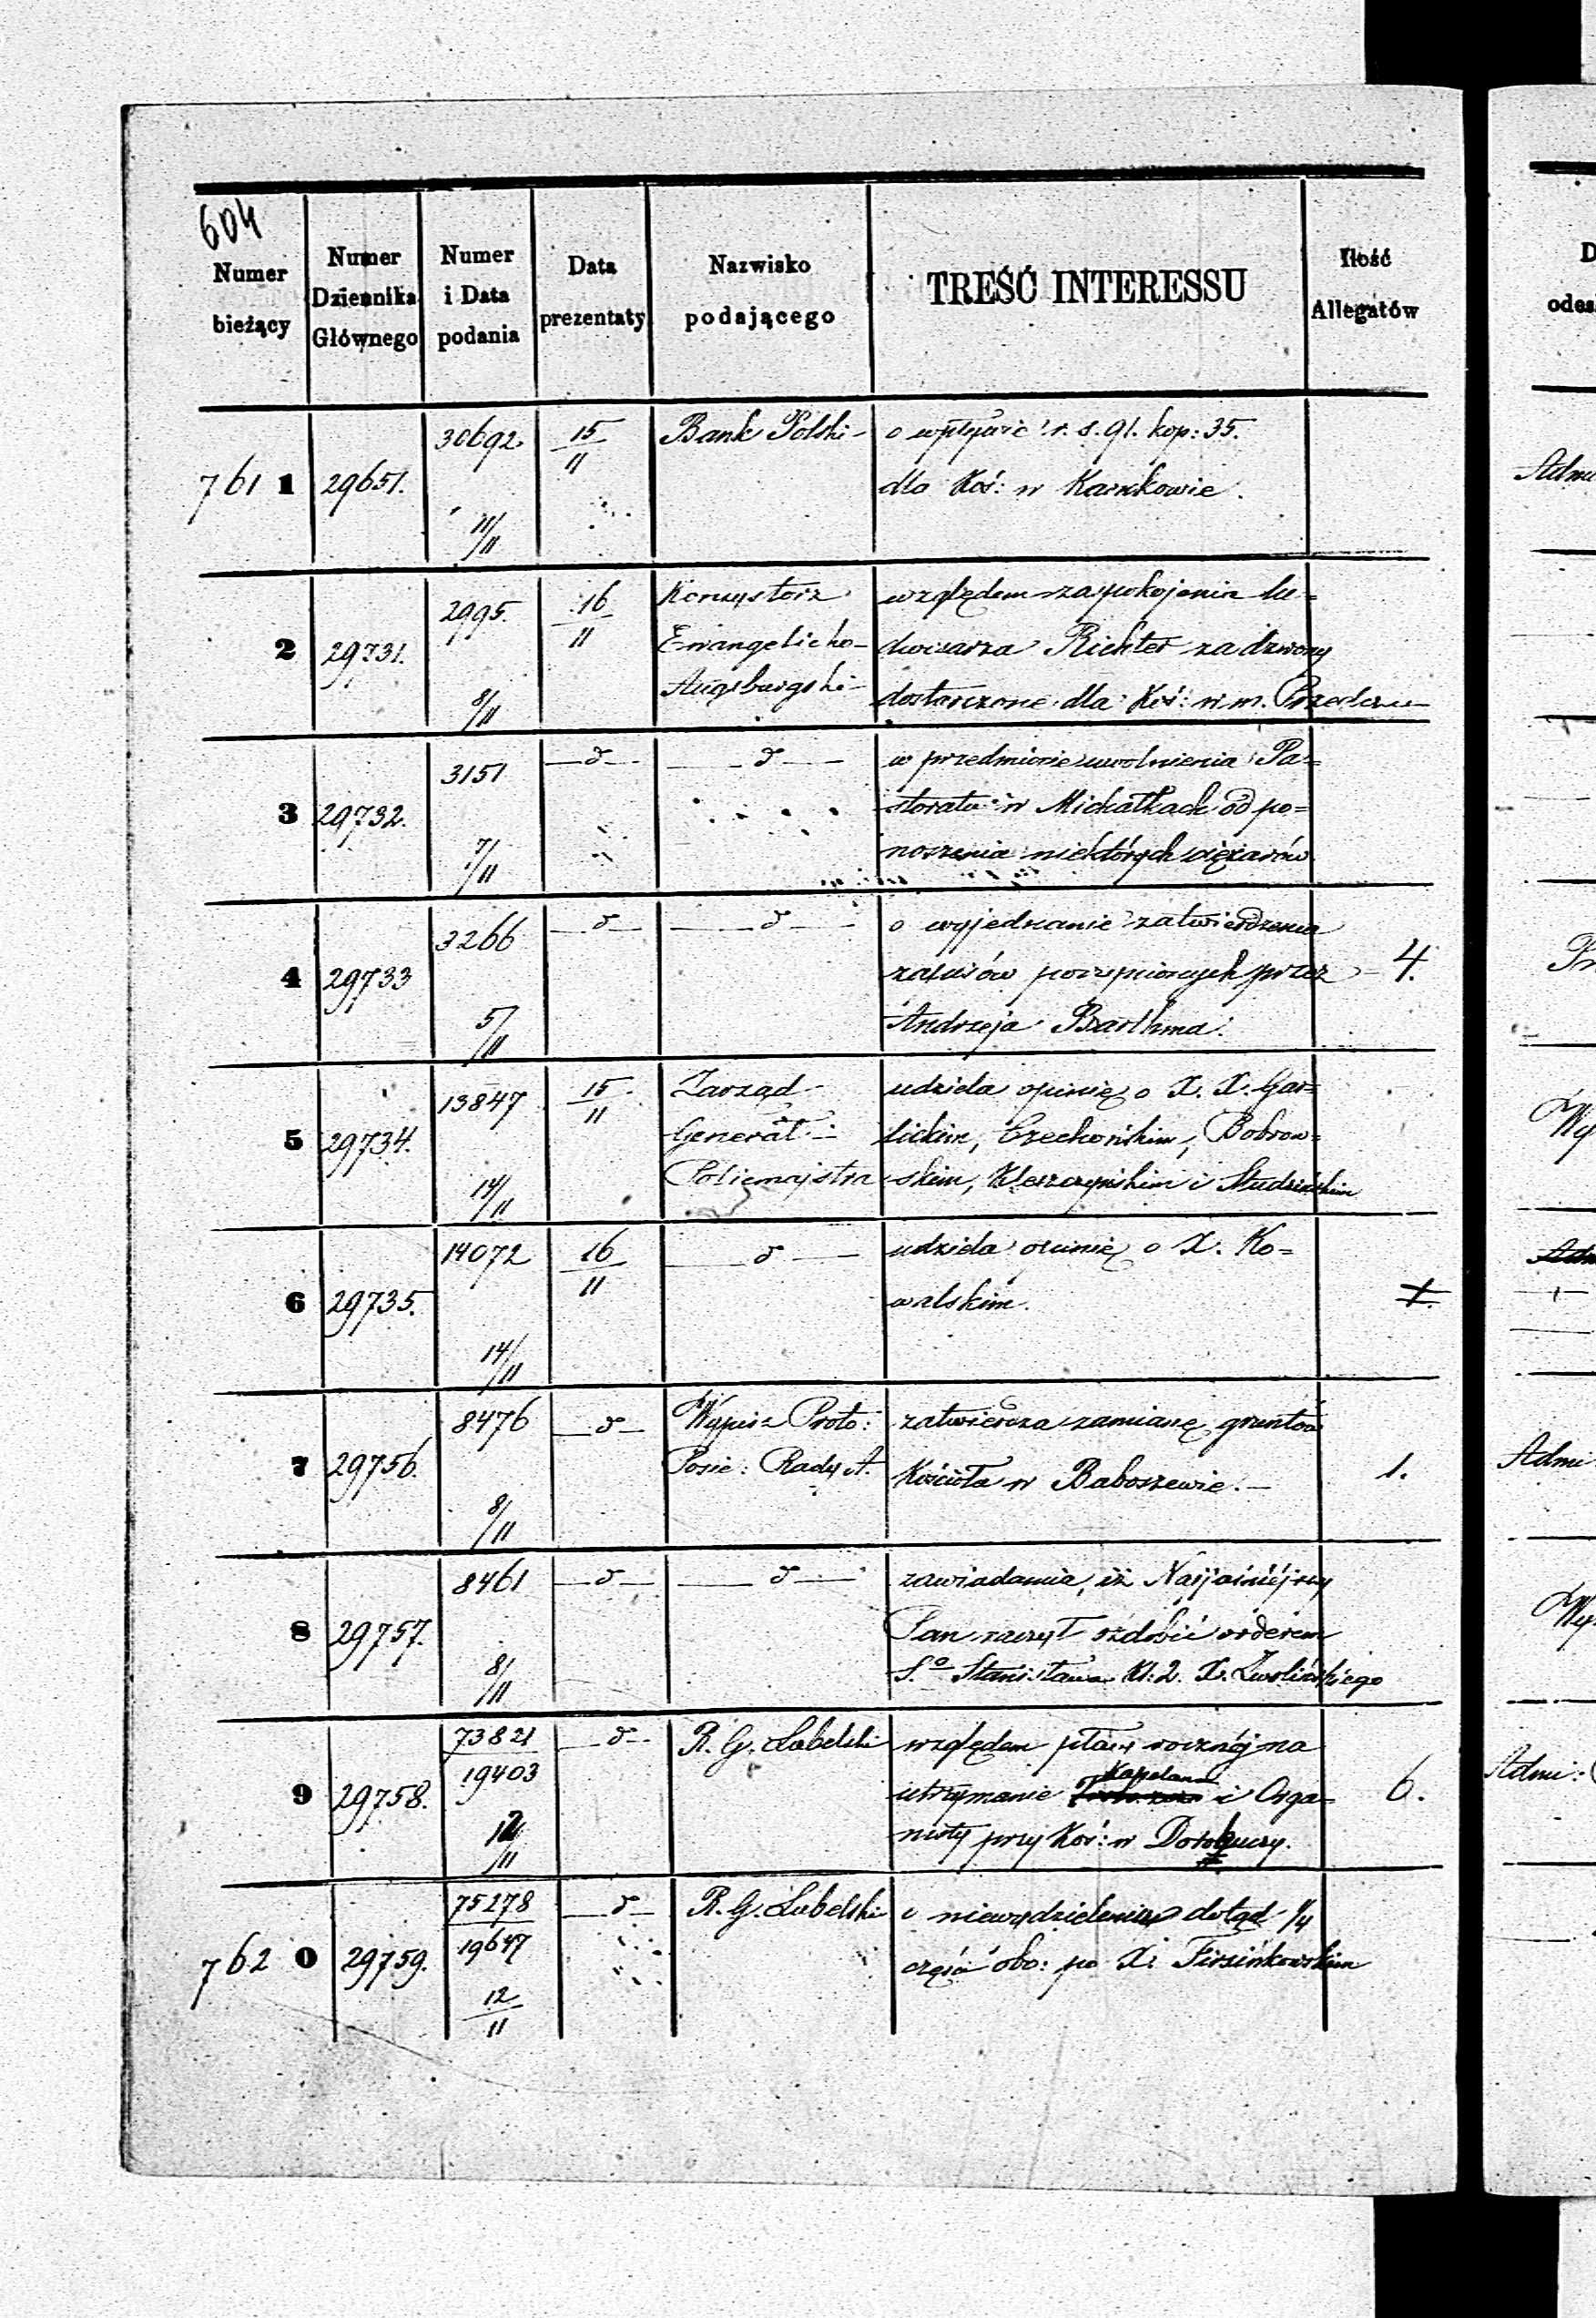 604
Numer bieżący
Numer Dziennika Głównego
Numer i Data podania
Data prezentaty
Nazwisko podającego
TREŚĆ INTERESSU
Ilość Allegatów
761 1 29651. 30692. 11/11 15/11 Bank Polski
o wpływie r. s. 91. kop: 35.
dla Koś: w Karnkowie.
2 29731. 2995. 8/11 16/11 Konsystorz
Ewangelicko-
Augsburgski
względem zaspokojenia lu=
dwisarza Richter za dzwony
dostarczone dla Koś: w m.
3 29732. 3151 7/11 d d
w przedmiocie uwolnienia Pa=
storatu w Michałkach od po=
noszenia niektórych ciężarów
4 29733 3266 5/11 d d 4.
o wyjednanie zatwierdzenia
zapisów poczynionych przez
Andrzeja
5 29734. 13847 14/11 15/11 Zarząd
Generał
Policmajstra
udziela opinię o X. X. Gar=
lickim, Bobrow=
skim, Kleszczyńskim i Studzińskim
6 29735. 14072 14/11 16/11 d
udziela opinię o X. Ko=
walskim.
7 29756. 8476 8/11 d Wypis z Proto:
Posie: Rady A. 1.
zatwierdza zamianę gruntów
Kościoła w Baboszewie.
8 29757. 8461 8/11 d d
zawiadamia, iż Najjaśniéjszy
Pan raczył ozdobić orderem
S.o Stanisława Kl: 2. X. Zwolińskiego
9 29758. 73821 19403 12/11 d R. G. Lubelski 6.
względem płacy rocznéj na
utrzymanie Kapelana i Orga=
nisty przy Koś: w
762 0 29759. 75278 19647 12/11 d R. G. Lubelski
o niewydzieleniu dotąd 1/4
część obo: po X: